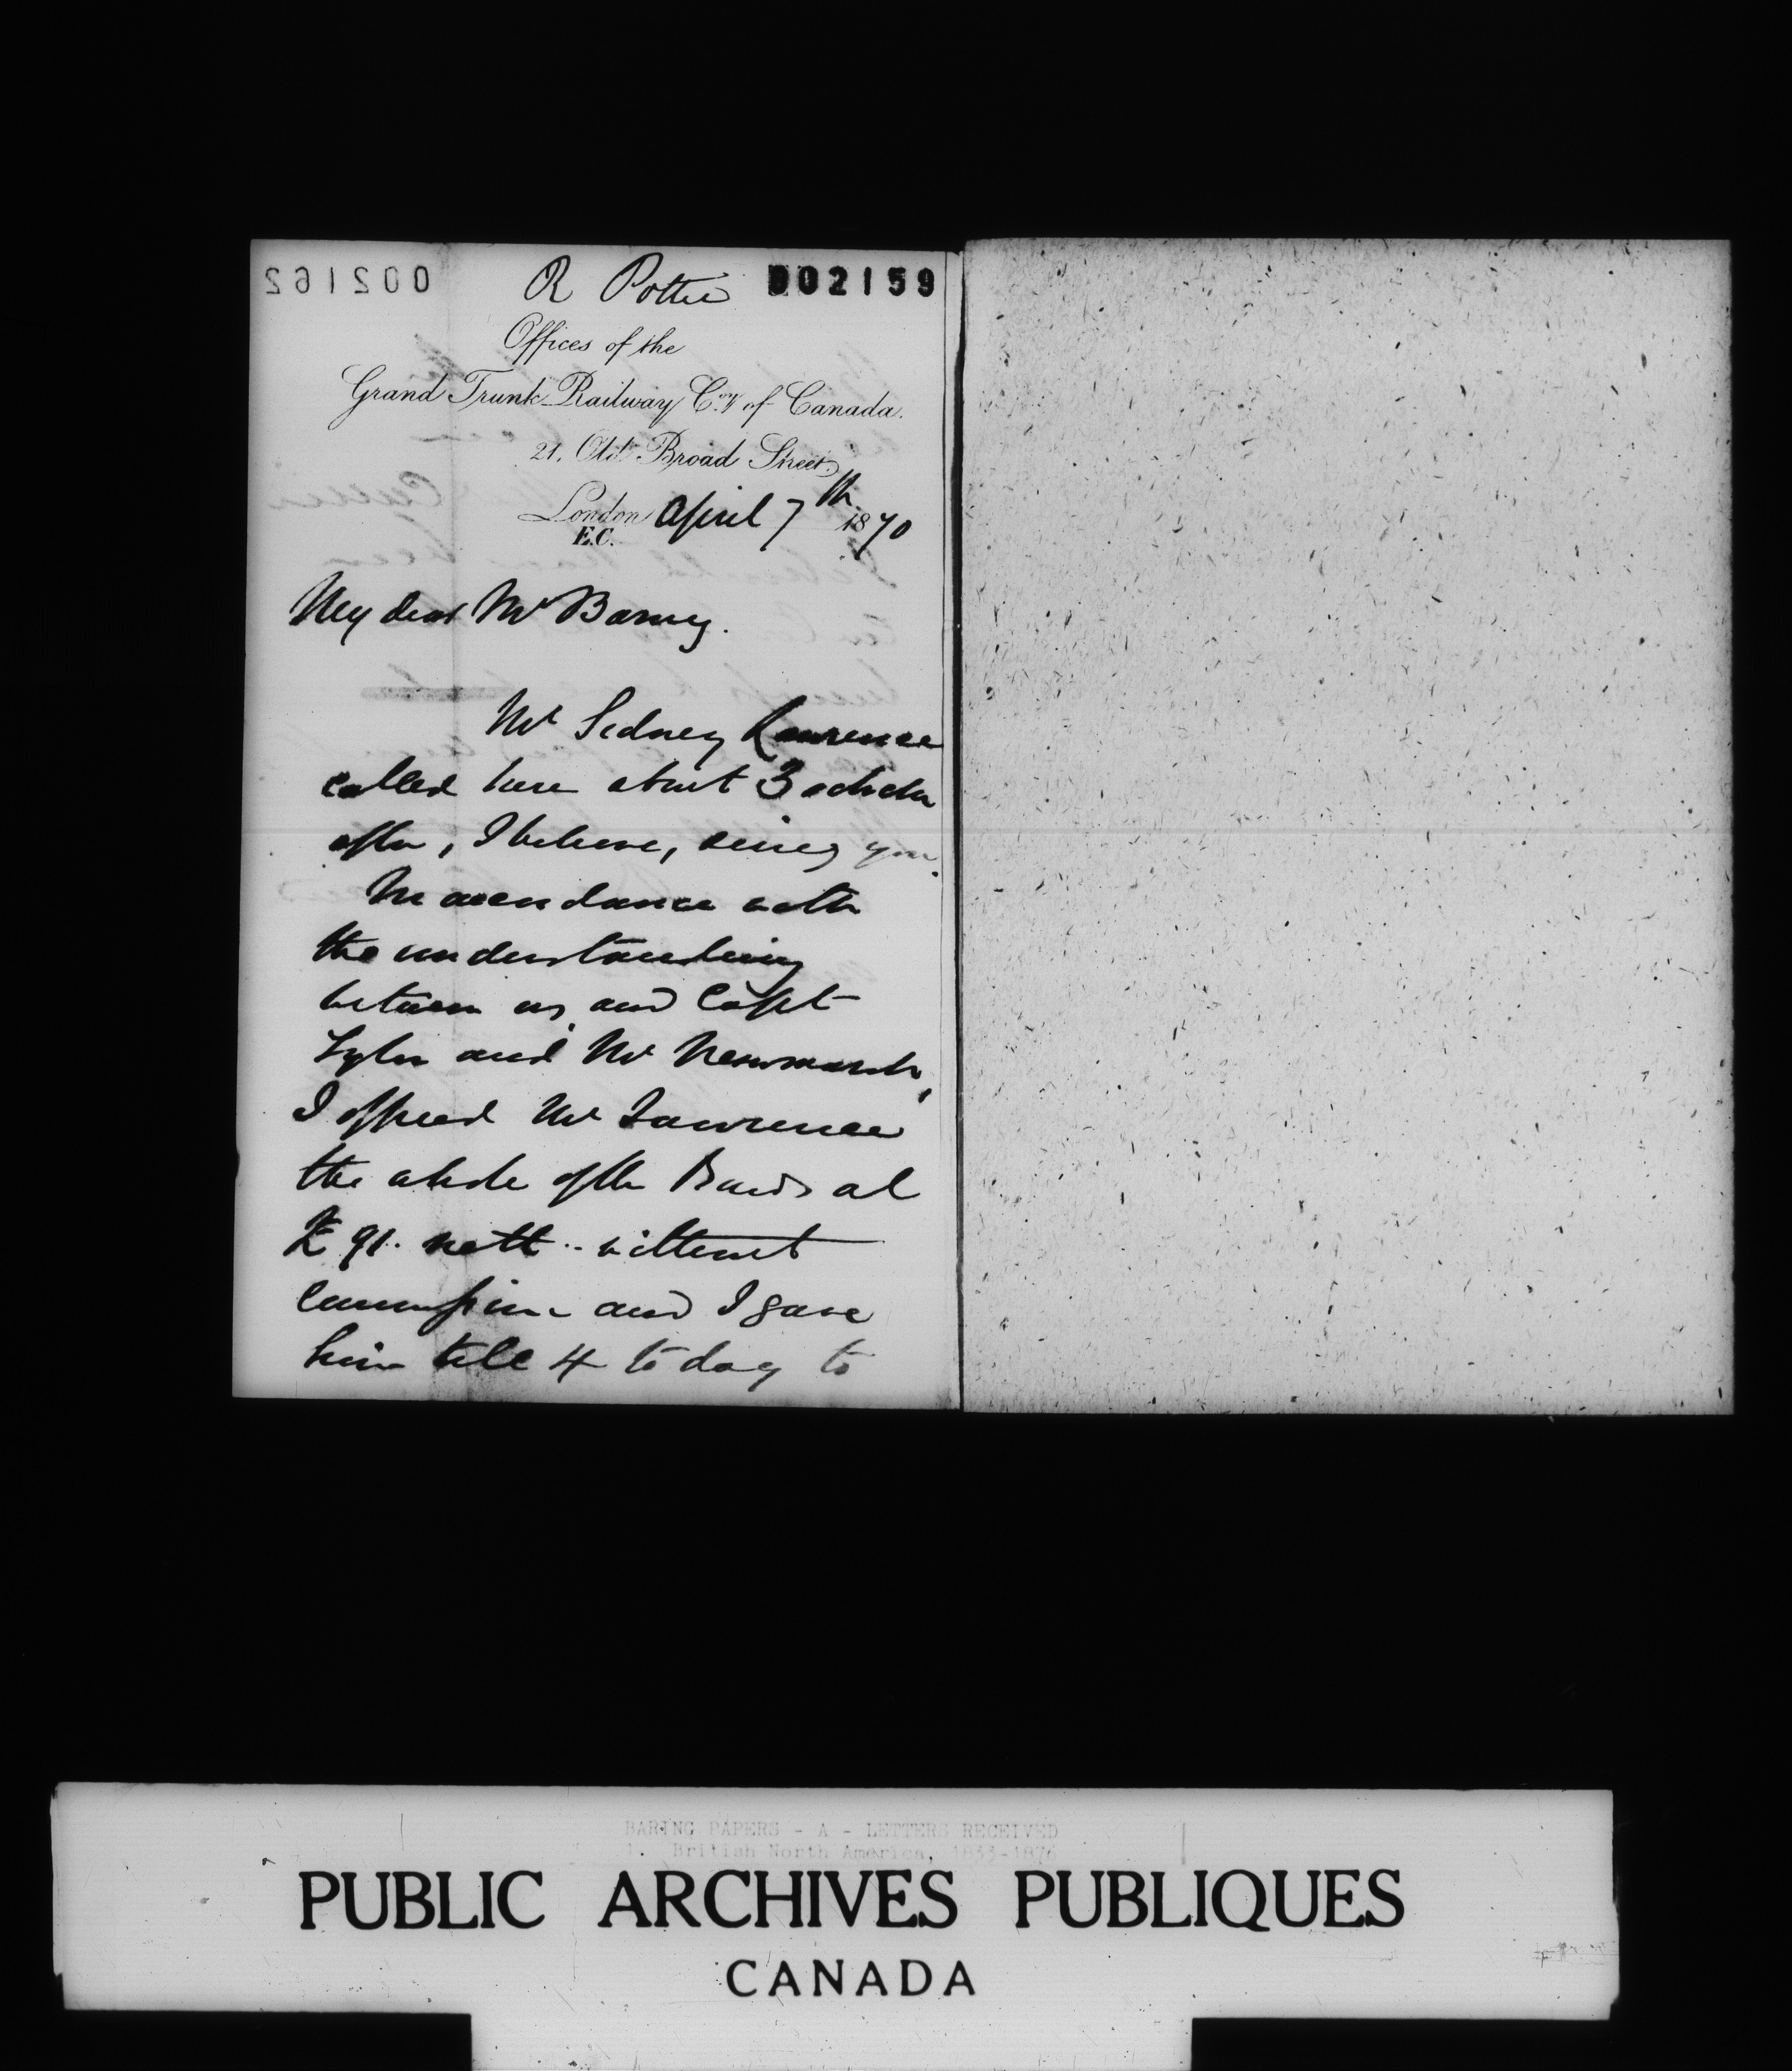 002162
R Potter 002159
Offices of the
Grand Trunk Railway Coy. of Canada.
21, Old Broad Street,
London April 7th 1870
E.C.
My dear Mr Baring.
Mr Sidney Lawrence
called here about 3 oclock
after, I believe, seeing you.
In accordance with
the understanding
between us and Capt
Tyler and Mr Newmarch,
I offered Mr Lawrence
the whole of the Bonds at
£91. nett .. without
commission and I gave
him till 4 to day to
BARING PAPERS - A - LETTERS RECEIVED
1. British North America, 1833-1876
PUBLIC ARCHIVES PUBLIQUES
CANADA